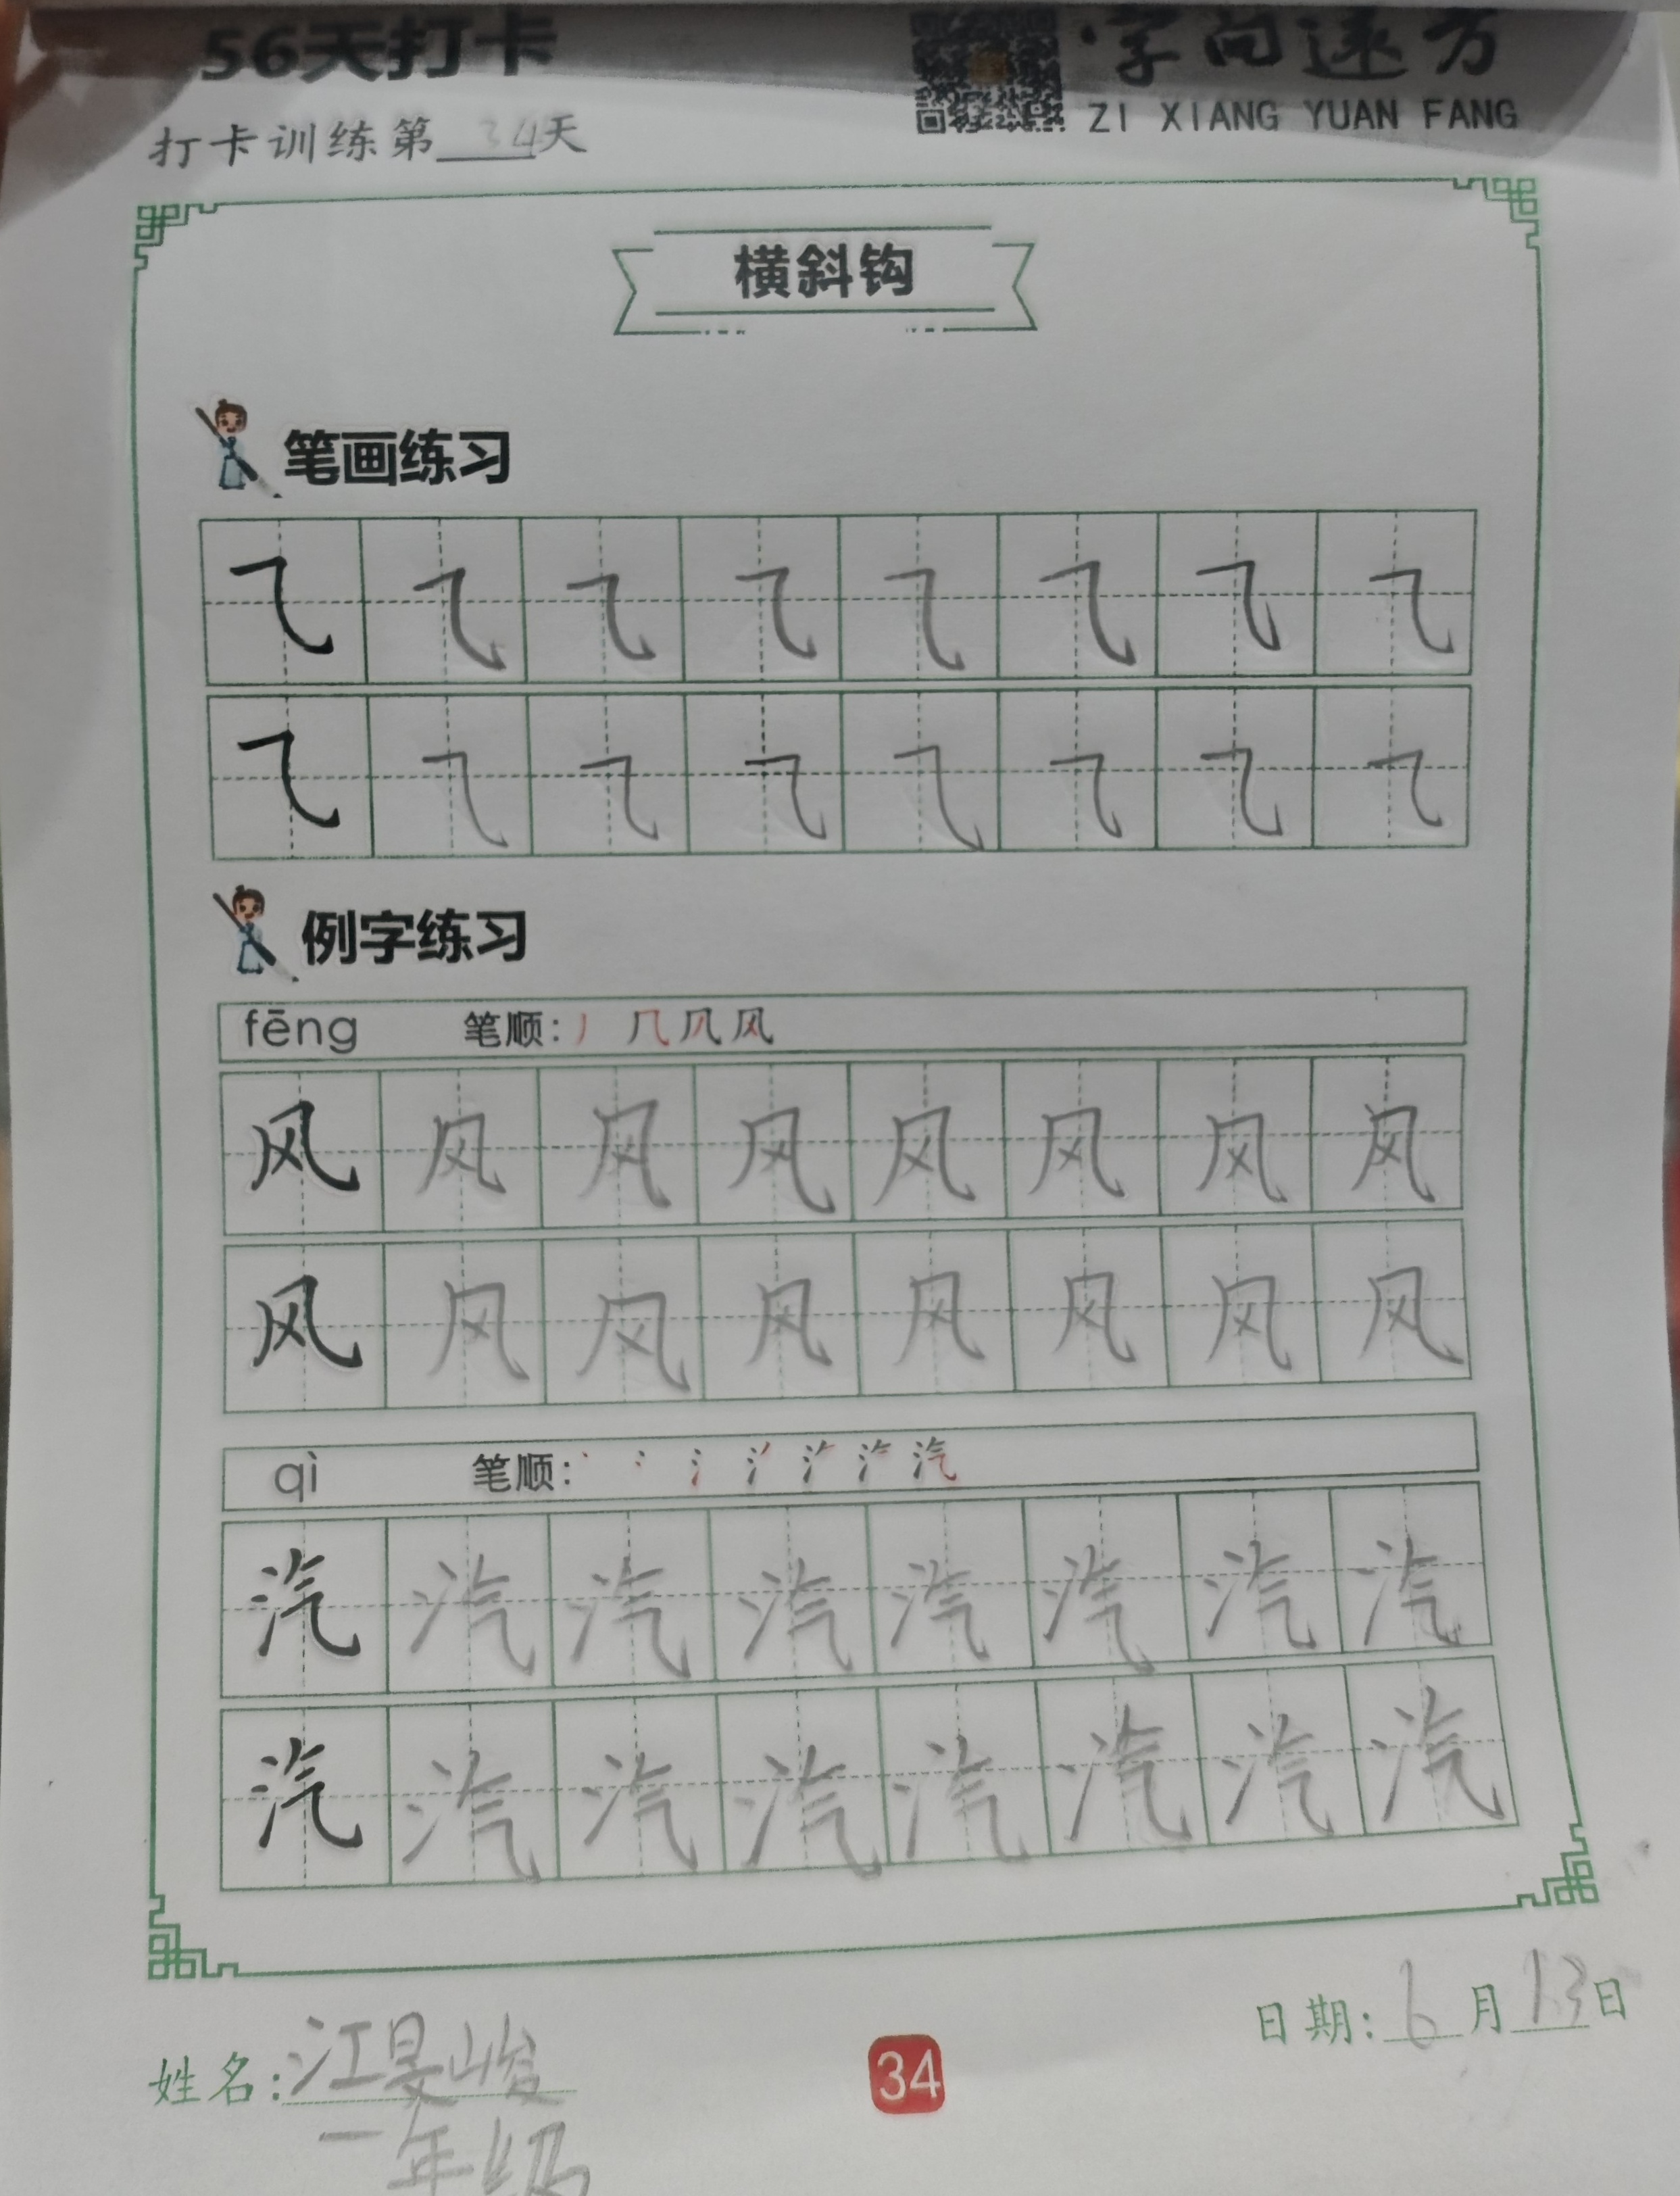 56天打卡
·字向远方
ZI XIANG YUAN FANG
打卡训练第34天
横斜钩
笔画练习
例字练习
fēng 笔顺: 风
风 风 风 风 风 风 风 风
风 风 风 风 风 风 风 风
qì 笔顺: 汽
汽 汽 汽 汽 汽 汽 汽 汽
汽 汽 汽 汽 汽 汽 汽 汽
日期: 6月13日
姓名: 江旻峻
34
一年级